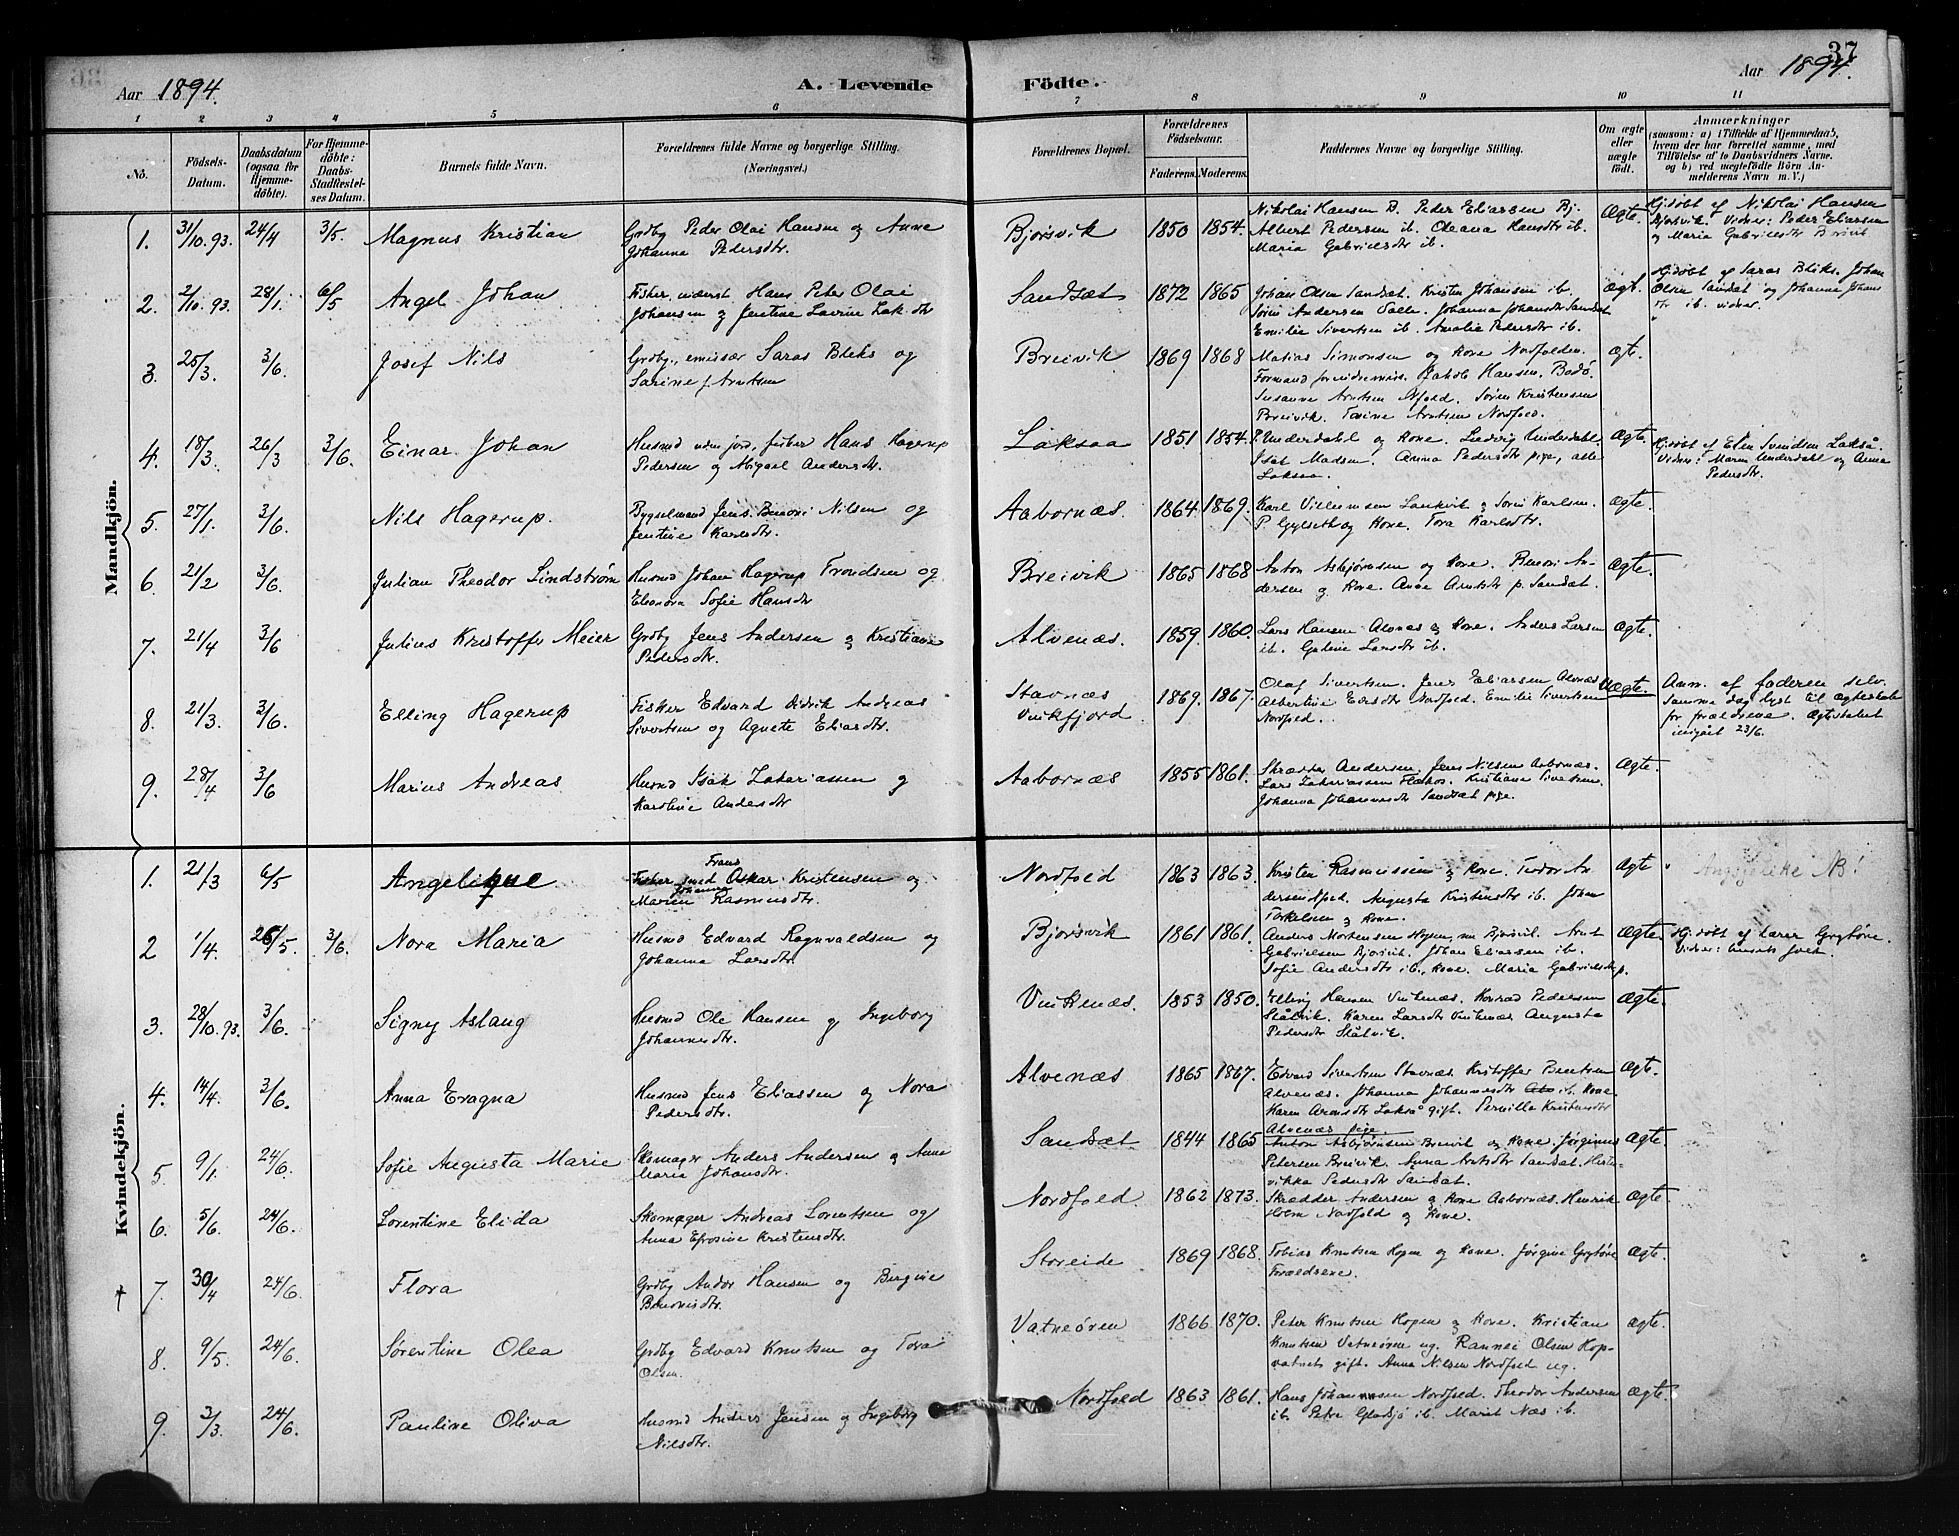 Aar 1894. A. Levende
Födte. Aar 1894.
37
1 2 3 4 5 6 7 8 9 10 11
No.
Födsels-
Datum.
Daabsdatum
(ogsaa for
Hjemme-
döbte).
For Hjemme-
döbte:
Daabs-
Stadfæstel-
ses Datum.
Barnets fulde Navn.
Forældrenes fulde Navne og borgerlige Stilling.
(Næringsvei.)
Forældrenes Bopæl.
Forældrenes
Födselsaar.
Faderens. Moderens.
Faddernes Navne og borgerlige Stilling.
Om ægte
eller
uægte
födt.
Anmærkninger
(saasom: a) i Tilfælde af Hjemmedaab,
hvem der har forrettet samme, med
Tilföielse af to Daabsvidners Navne.
og b) ved uægtefödte Börn An-
melderens Navn m. V.)
Mandkjön.
1. 31/10.93. 24/4 3/5. Magnus Kristian
Grdbr Peder Olai Hansen og Anne
Johanna Pedersdtr.
Bjorsvik 1850 1854.
Nikolai Hansen B. Peder Eliassen Bj.
Albert Pedersen ib. Oleana Hansdtr ib.
Maria Gabrielsdtr ib.
Ægte.
Hj.döbt af Nikolai Hansen
Bjorsvik. Vidner: Peder Eliassen
og Maria Gabrielsdtr
2. 2/10.93. 28/1. 6/5 Angel Johan
Fisker, inderst Hans Peter Olai
Johansen og Jentine Lavine Isak.dtr
Sandsæt 1872 1865
Johan Olsen Sandsæt. Kristen Johansen ib.
Sörin Andersen Johanna Johansdtr Sandsæt
Emilie Sivertsen ib. Amalie Pedersdtr ib.
ægt.
Hj.döbt af Saras Bleks. Johan
Olsen Sandsæt og Johanna Johans
dtr ib. vidner.
3. 25/3. 3/6. Josef Nils
Grdbr., emissær Saras Bleks og
Sarine f. Arntsen
Breivik 1869 1868
Matias Simonsen og Kone Nordfolden.
Formand Jakob Hansen, Bodö.
Susanne Arntsen Nfold. Sören Kristensen
Breivik. Tarine Arntsen Nordfold.
ægte.
4. 18/3. 26/3 3/6. Einar Johan
Husmd uden jord, fisker Hans Hagerup
Pedersen og Abigael Andersdtr.
Laksaa 1851 1854.
P. Underdahl og Kone. Ludvig Underdahl.
Isak Madsen. Anna Pedersdtr pige, alle
Laksaa.
Ægte.
Hj.döbt af Elen Svendsen Lakså.
Vidner: Maren Underdahl og Anna
Pedersdtr.
5. 27/1. 3/6. Nils Hagerup.
Bygselmand Jens Benoni Nilsen og
Jentine Karlsdtr.
Aabornæs. 1864 1869.
Karl Villumsen og Sörin Karlsen.
P. Gylseth og Kone. Tora Karlsdtr.
Ægte.
6. 21/2 3/6. Julian Theodor Lindström
Husmd Johan Hagerup Trondsen og
Eleonora Sofie Hansdtr
Breivik 1865 1868
Anton Asbjörnsen og Kone. Benoni An-
dersen og Kone. Anne Arntsdtr p. Sandsæt.
Ægte.
7. 21/4 3/6 Julius Kristoffer Meier
Grdbr Jens Andersen og Kristiane
Pedersdtr.
Alvenæs. 1859. 1860.
Lars Hansen Alvnæs og Kone. Anders Larsen
ib. Gutine Larsdtr ib.
Ægte.
8. 21/3. 3/6. Elling Hagerup
Fisker Edvard Didrik Andreas
Sivertsen og Agnete Eliasdtr.
Stavnæs
Vinkfjord. 1869. 1867.
Olaf Sivertsen. Jens Eliassen Alvnæs
Albertine Nordfold. Emilie Sivertsen
Nordfold.
Uægte.
Anm. af faderen selv.
Samme dag lyst til ægteskab
for forældrene. Ægteskabet
indgået 23/6.
9. 28/4 3/6 Marius Andreas
Husmd Isak Zakariassen og
Karoline Andersdtr
Aabornæs 1855 1861.
Skrædder Andersen. Jens Nilsen Aabornæs.
Lars Zakariassen Kristiane Sivertsen.
Johanna Johannesdtr Sandsæt pige.
Ægte.
Kvindekjön.
1. 21/3 6/5 Angelique
Frans
Fisker Oskar Kristensen og
Johanna
Maren Rasmusdtr.
Nordfold 1863 1863.
Kristen Rasmussen og Kone. Teodor An
dersen Nfold. Augusta Kristensdtr ib. Johan
Torkelsen og Kone.
Ægte
Angjelike N!
2 1/4. 26/5 3/6. Nora Maria
Husmd Edvard Ragnvaldsen og
Johanna Larsdtr.
Bjorsvik 1861 1861.
Anders Mortensen Hopen, nu Bjorsvik. Arnt
Gabrielsen Bjorsvik. Johan Eliassen ib.
Sofie Andersdtr ib., Kone. Maria Gabrielsdtr p.
Ægte.
Hj.döbt af lærer Grytöre.
Vidner: husets folk.
3. 28/10.93. 3/6. Signy Aslaug
Husmd Ole Hansen og Ingeborg
Johannesdtr.
Vinkenæs. 1853 1850.
Elling Hansen Vinkenæs. Konrad Pedersen
Stålvik. Karen Larsdtr Vinkenæs Augusta
Pedersdtr Stålvik.
Ægte.
4. 14/4. 3/6. Anna Eragna
Husmd Jens Eliassen og Nora
Pedersdtr.
Alvenæs 1865 1867.
Edvard Sivertsen Stavnæs. Kristoffer Bentsen
Alvenæs. Johanna Johannesdtr ib. Kone.
Karen Arentsdtr Lakså gift. Pernille Kristensdtr
Alvenæs pige.
Ægte.
5. 9/1. 24/6. Sofie Augusta Marie
Skomager Anders Andersen og Anne
Maria Johansdtr.
Sandsæt 1844 1865
Anton Asbjörnsen Breivik og Kone. Jörginus
Petersen Breivik. Anna Arntsdtr Sandsæt. Hen-
rikka Pedersdtr Sandsæt.
Ægte.
6. 5/6. 24/6. Lorentine Elida
Skomager Andreas Lorentsen og
Anna Efrosine Kristensdtr.
Nordfold 1862 1873.
Skrædder Andersen og Kone Aabornæs. Henrik
Nordfold og Kone.
Ægte.
7. 30/4 24/6. Flora
Grdbr Andor Hansen og Bergine
Benonisdtr.
Storeide 1869 1868.
Tobias Knutsen Hopen og Kone. Jörgine Grytöre
Forældrene.
Ægte.
8. 9/5. 24/6. Sörentine Olea
Grdbr Edvard Knutsen og Tora
Olsen.
Vatneören 1866 1870.
Peter Knutsen Hopen og Kone. Kristian
Knutsen Vatneören ug. Rannei Olsen Hop-
vatnets gift. Anna Nilsen Nordfold ug.
Ægte.
9. 3/3. 24/6. Pauline Oliva
Husmd Anders Jensen og Ingeborg
Nilsdtr.
Nordfold 1863 1861.
Hans Johannesen Nordfold. Theodor Andersen
ib. Petra ib. Marit Næs ib.
Ægte.